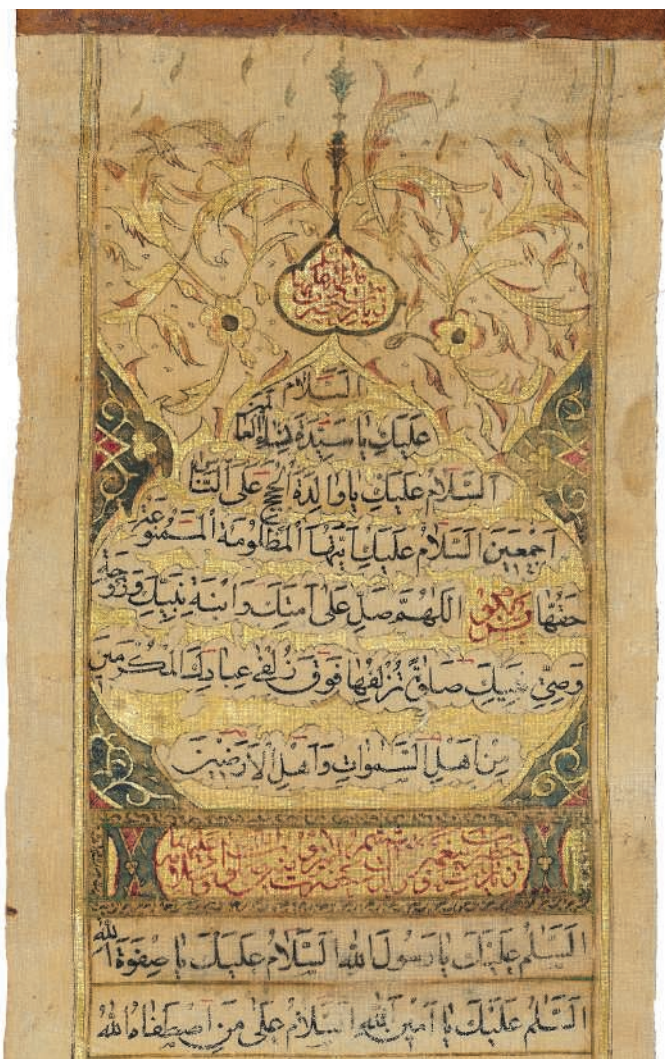 زیارت حضرت فاطمه علیها السلام
السَّلَامُ
عَلَيْكِ يَا سَيِّدَةَ نِسَاءِ الْعَالَمِينَ
اَلسَّلَامُ عَلَيْكِ يَا وَالِدَةَ الْحُجَجِ عَلَى النَّاسِ
اَجْمَعِينَ اَلسَّلَامُ عَلَيْكِ اَيَّتُهَا الْمَظْلُومَةُ الْمَمْنُوعَةُ
حَقُّهَا پس بگو اَللّٰهُمَّ صَلِّ عَلَى اَمَتِكَ وَابْنَةِ نَبِيِّكَ وَزَوْجَةِ
وَصِيِّ نَبِيِّكَ صَلٰوةً تُزْلِفُهَا فَوْقَ زُلْفٰى عِبَادِكَ الْمُكَرَّمِينَ
مِنْ اَهْلِ السَّمٰوَاتِ وَاَهْلِ الْاَرَضِينَ
اَلسَّلٰمُ عَلَيْكَ يَا رَسُولَ اللهِ اَلسَّلَامُ عَلَيْكَ يَا صِفْوَةَ اللهِ
اَلسَّلٰمُ عَلَيْكَ يَا اَمِينَ اللهِ اَلسَّلَامُ عَلٰى مَنِ اصْطَفَاهُ اللهُ